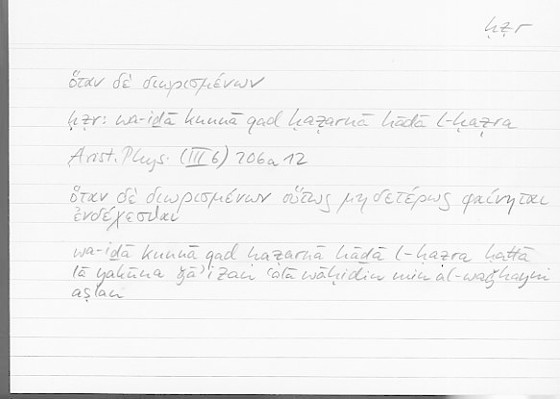 ḥẓr
ὅταν δὲ διωρισμένων
ḥẓr: wa-iḏā kunnā qad ḥaẓarnā hāḏā l-ḥaẓra
Arist. Phys. (III 6) 206a12
ὅταν δὲ διωρισμένων οὕτως μηδετέρως φαίνηται
ἐνδέχεσθαι
wa-iḏā kunnā qad ḥaẓarnā hāḏā l-ḥaẓra ḥattā
lā yakūna ǧāʾizan ʿalā wāḥidin min al-waǧhayni
aṣlan